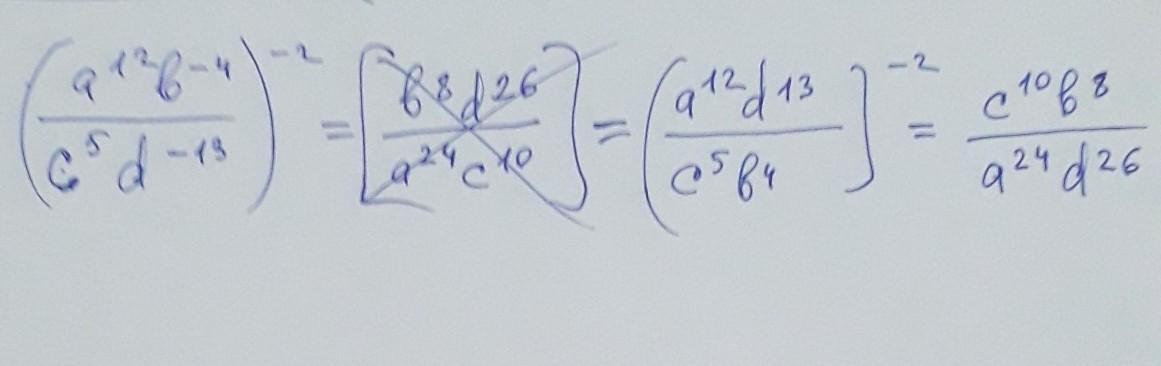 (a^12 b^-4 / c^5 d^-13)^-2 = [b^8 d^26 / a^24 c^10] = (a^12 d^13 / c^5 b^4]^-2 = c^10 b^8 / a^24 d^26